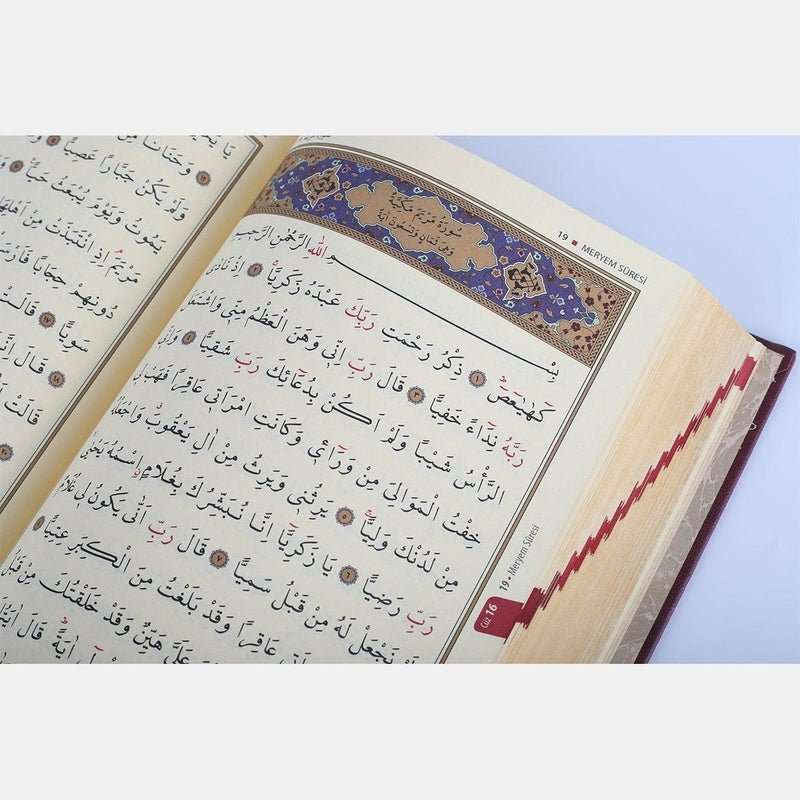 19 ▪ MERYEM SÛRESİ
سُورَةُ مَرْيَمَ مَكِّيَّةٌ
وَهِيَ ثَمَانٍ وَتِسْعُونَ اٰيَةً
بِسْمِ اللّٰهِ الرَّحْمٰنِ الرَّحِيمِ
كٓهٰيٰعٓصٓ ﴿١﴾ ذِكْرُ رَحْمَتِ رَبِّكَ عَبْدَهُ زَكَرِيَّا ﴿٢﴾ اِذْ نَادٰى
رَبَّهُ نِدَٓاءً خَفِيًّا ﴿٣﴾ قَالَ رَبِّ اِنّٖى وَهَنَ الْعَظْمُ مِنّٖى وَاشْتَعَلَ
الرَّأْسُ شَيْبًا وَلَمْ اَكُنْ بِدُعَٓائِكَ رَبِّ شَقِيًّا ﴿٤﴾ وَاِنّٖى
خِفْتُ الْمَوَالِىَ مِنْ وَرَٓاءٖى وَكَانَتِ امْرَاَتٖى عَاقِرًا فَهَبْ لٖى
مِنْ لَدُنْكَ وَلِيًّا ﴿٥﴾ يَرِثُنٖى وَيَرِثُ مِنْ اٰلِ يَعْقُوبَ وَاجْعَلْهُ
رَبِّ رَضِيًّا ﴿٦﴾ يَا زَكَرِيَّٓا اِنَّا نُبَشِّرُكَ بِغُلَامٍ اسْمُهُ يَحْيٰى
لَمْ نَجْعَلْ لَهُ مِنْ قَبْلُ سَمِيًّا ﴿٧﴾ قَالَ رَبِّ اَنّٰى يَكُونُ لٖى غُلَامٌ
عَاقِرًا وَقَدْ بَلَغْتُ مِنَ الْكِبَرِ عِتِيًّا ﴿٨﴾
عَلَىَّ هَيِّنٌ وَقَدْ خَلَقْتُكَ مِنْ قَبْلُ
اٰيَةً قَالَ
19 • Meryem Sûresi
Cüz 16
يَا
وَحَنَانًا مِنْ
وَلَمْ يَكُنْ جَبَّارًا عَصِيًّا
يَمُوتُ وَيَوْمَ يُبْعَثُ حَيًّا
مَرْيَمَ اِذِ انْتَبَذَتْ مِنْ اَهْلِهَا
دُونِهِمْ حِجَابًا
سَوِيًّا ﴿١٧﴾ قَالَتْ
﴿١٨﴾ قَالَ
قَالَتْ